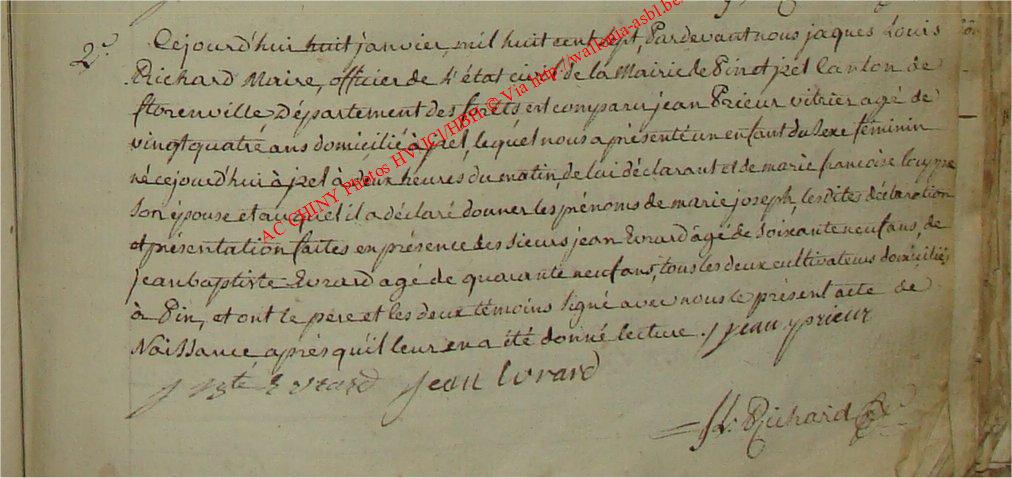 2.e
Cejourd'hui huit janvier, mil huit cent sept, Pardevant nous jaques Louis
Richard Maire, officier de l'état civil de la Mairie de Pin et jzel Canton de
florenville Département des forêts est comparu jean Prieur vitrier agé de
vingt quatre ans domicilié à jzel, lequel nous a présenté un enfant du Sexe féminin
né cejourd'hui à jzel à deux heures du matin, de lui déclarant et de marie françoise louppe
son épouse et auquel il a déclaré donner les prénoms de marie joseph, les dites déclaration
et présentation faites en présence des sieurs jean Evrard âgé de soixante neuf ans, de
jean baptiste Evrard agé de quarante neuf ans, tous les deux cultivateurs domiciliés
à Pin, et ont le père et les deux témoins signé avec nous le présent acte de
Naissance après qu'il leur en a été donné lecture. / jean prieur
j Bte Evrard jean Evrard
JL: Richard
AC CHINY Photos HVJICI/HBH © Via http://wallonia-asbl.be